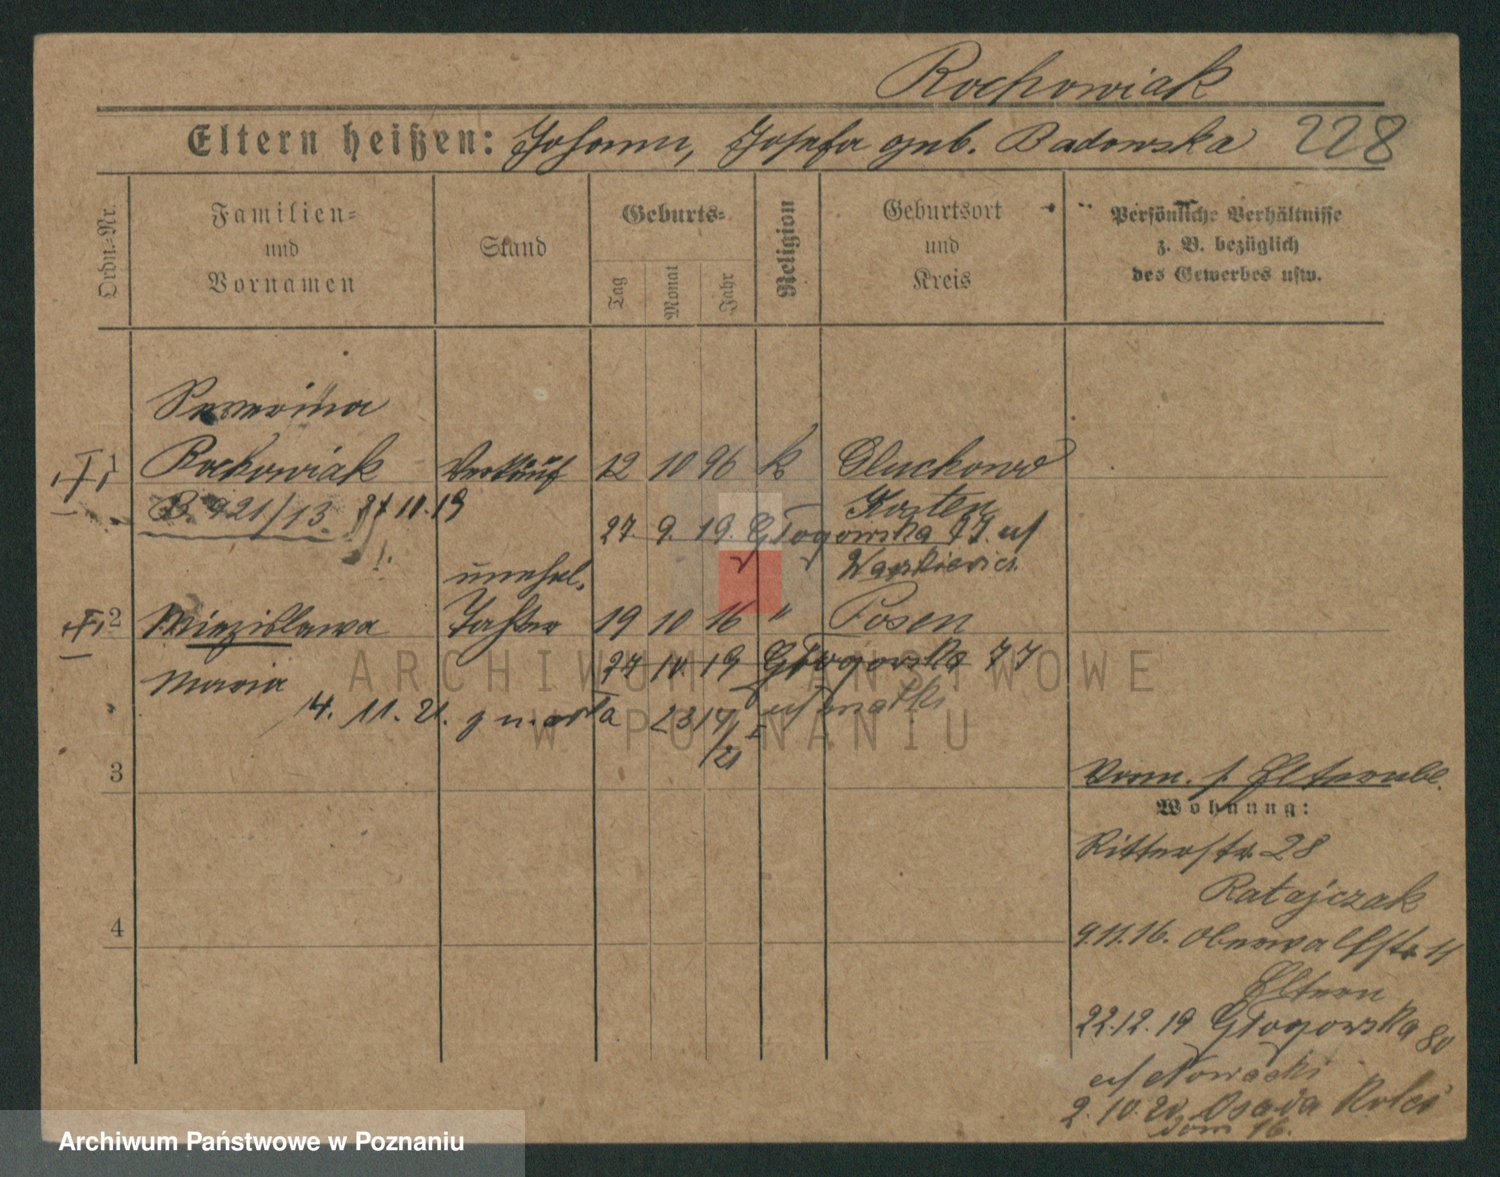 Rochowiak
Eltern heißen: Johann, Josefa geb. Badowska 228
Ordn.-Nr.
Familien-
und
Vornamen
Stand
Geburts-
Tag
Monat
Jahr
Religion
Geburtsort
und
Kreis
Persönliche Verhältnisse
z. B. bezüglich
des Gewerbes usw.
Severina
1 Rochowiak Verkäuf 12 10 96 k Gluchowo
Kosten
B 921/13 11.19
27. 9. 19. Głogowska 77.
unehel.
2 Miezislawa Tochter 19 10 16 " Posen
Maria
27 10. 19 Głogowska 77
matki
14. 11. 21. 23/4
/21
3
Vorm. s. Elternbl.
Wohnung:
Ritterstr. 28
Ratajczak
4
9.11.16. Oberwallstr. 11
Eltern
22.12.19 Głogowska 80
Nowacki
2. 10. 20. Osada
dom 16.
ARCHIWUM PAŃSTWOWE
W POZNANIU
Archiwum Państwowe w Poznaniu